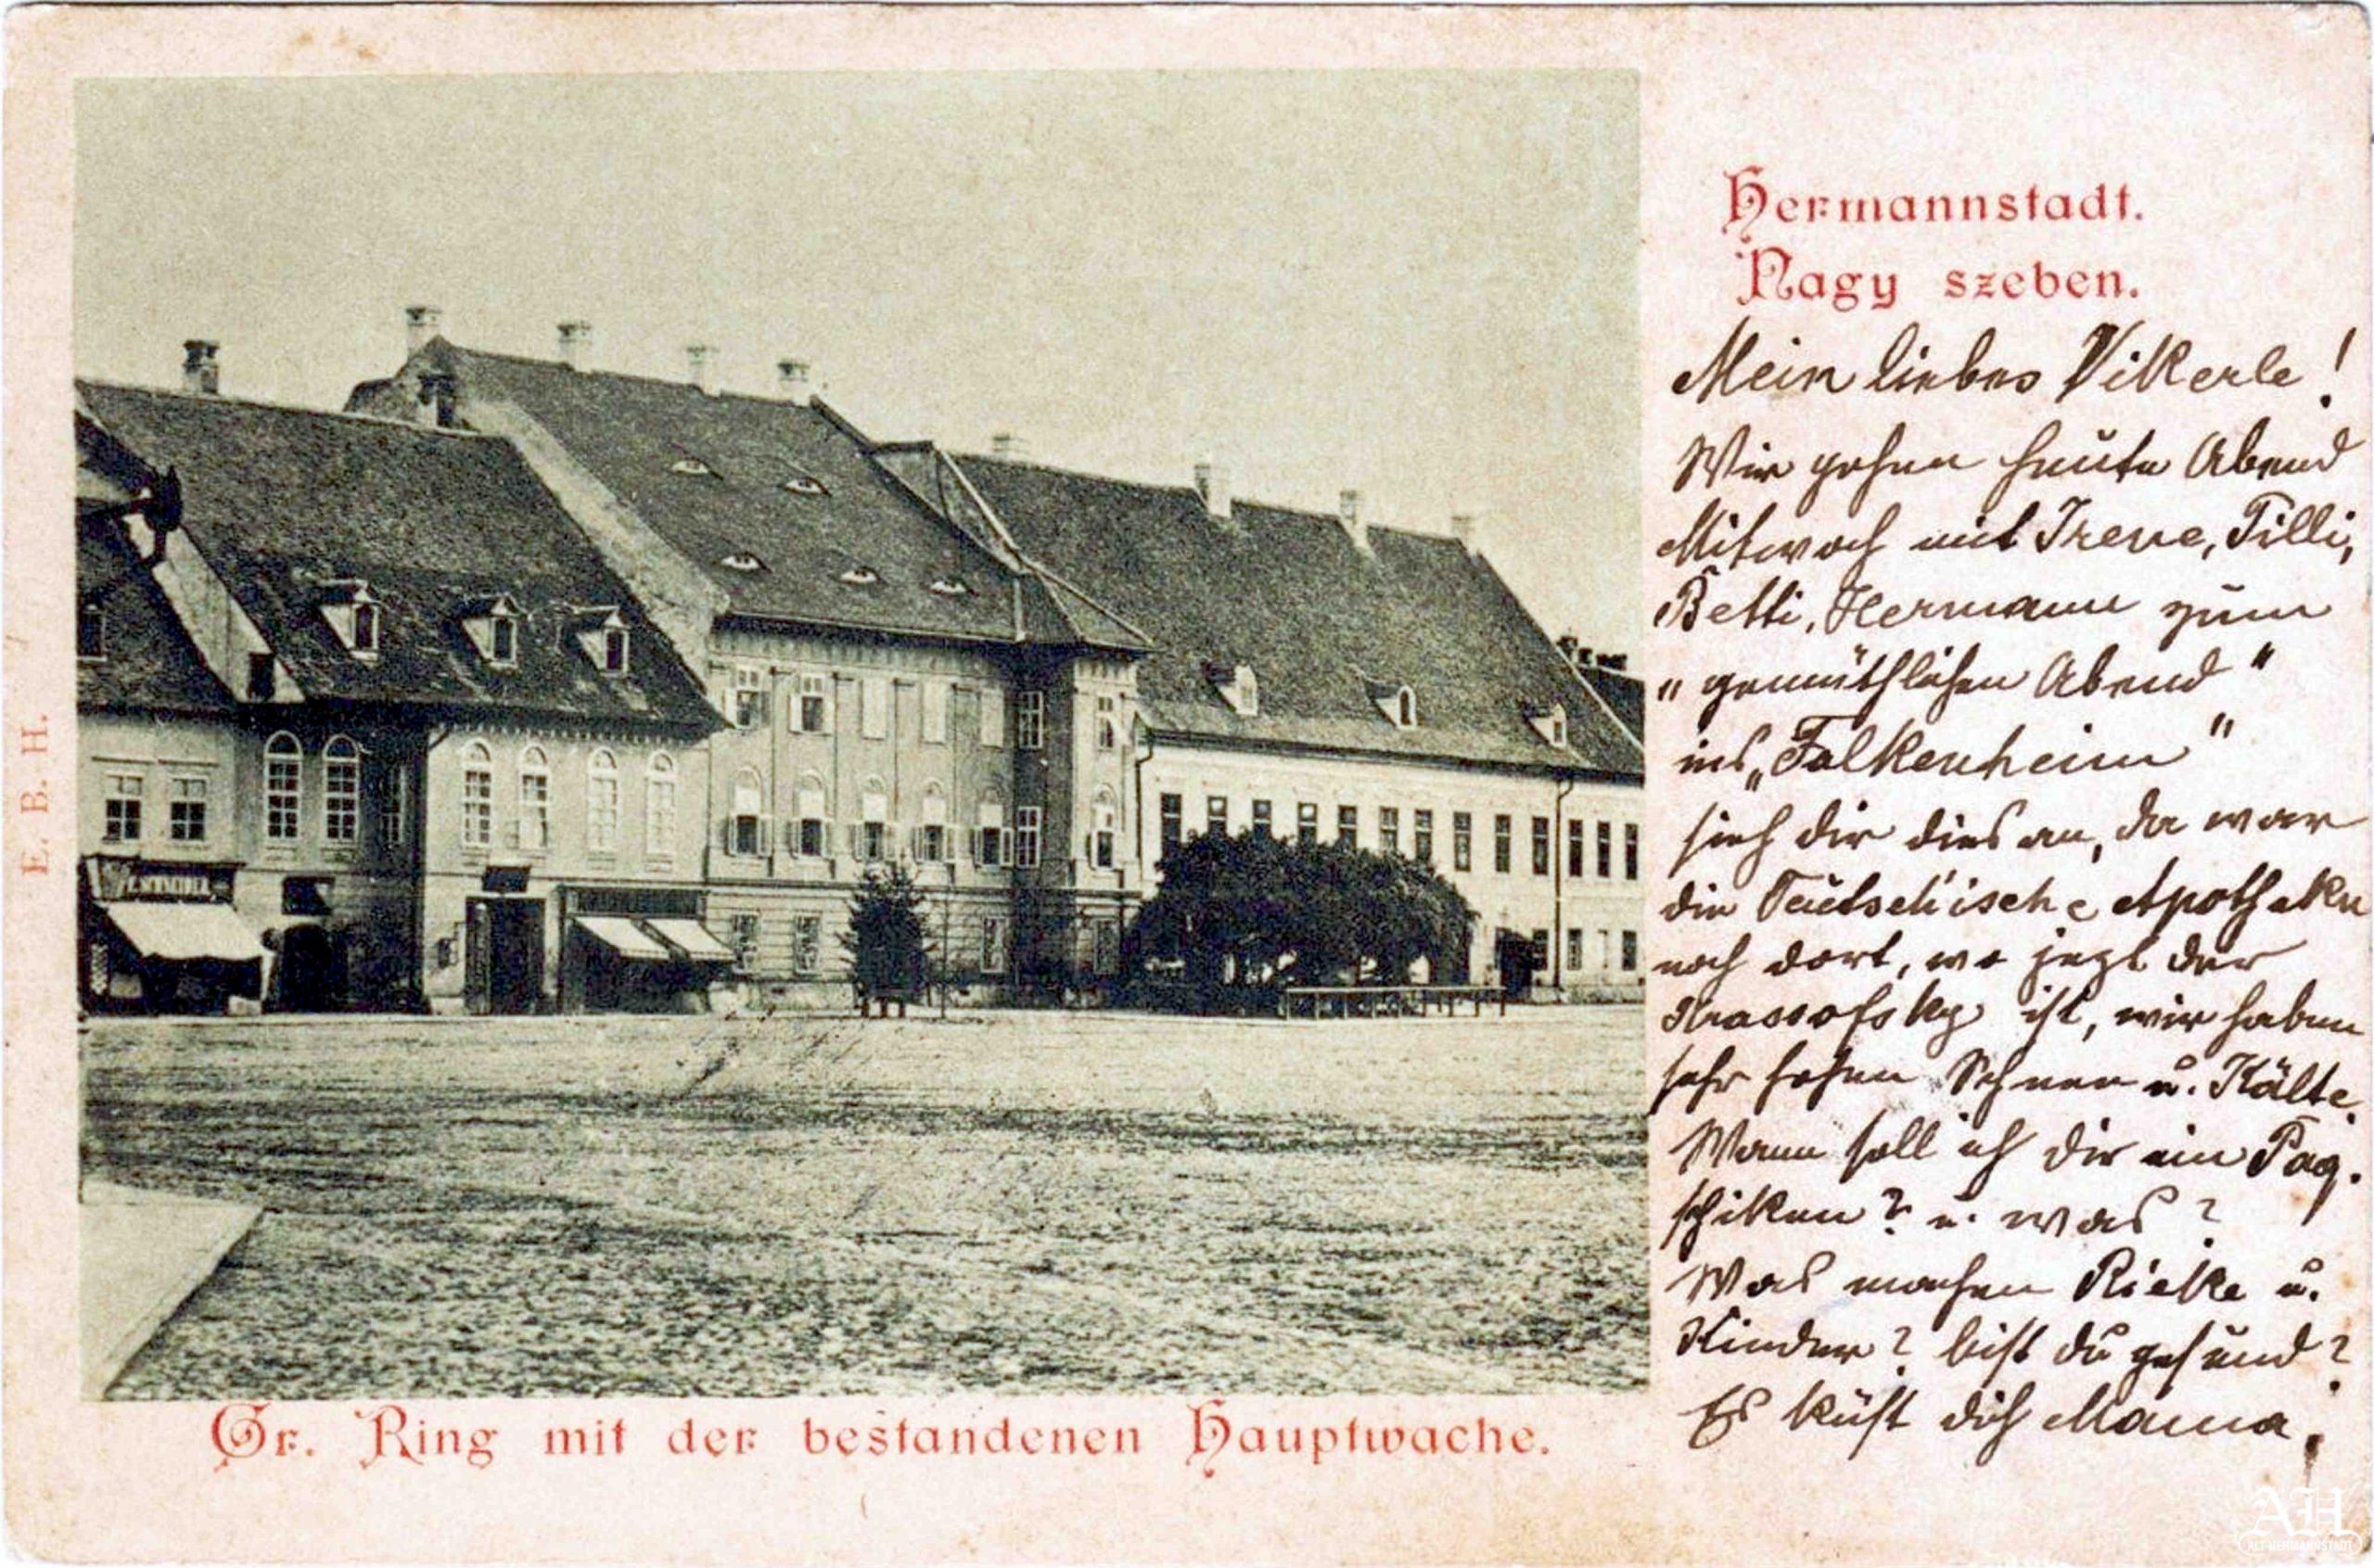 Hermannstadt.
Nagy szeben.
Mein liebes Vikerle!
Wir gehen heute Abend
Mitwoch mit Irene, Tilli,
Betti, Hermann zum
"gemüthlichen Abend"
ins „Falkenheim"
sieh dir dies an, da war
die Teutsch'ische Apotheke
noch dort, wo jezt der
Krassofsky ist, wir haben
sehr hohen Schnee u. Kälte.
Wann soll ich dir ein Pag.
schiken? u. was?
Was machen Rieke u.
Kinder? bist du gesund?
Es küßt dich Mama.
Gr. Ring mit der bestandenen Hauptwache.
E. B. H.
AH
ALT-HERMANNSTADT